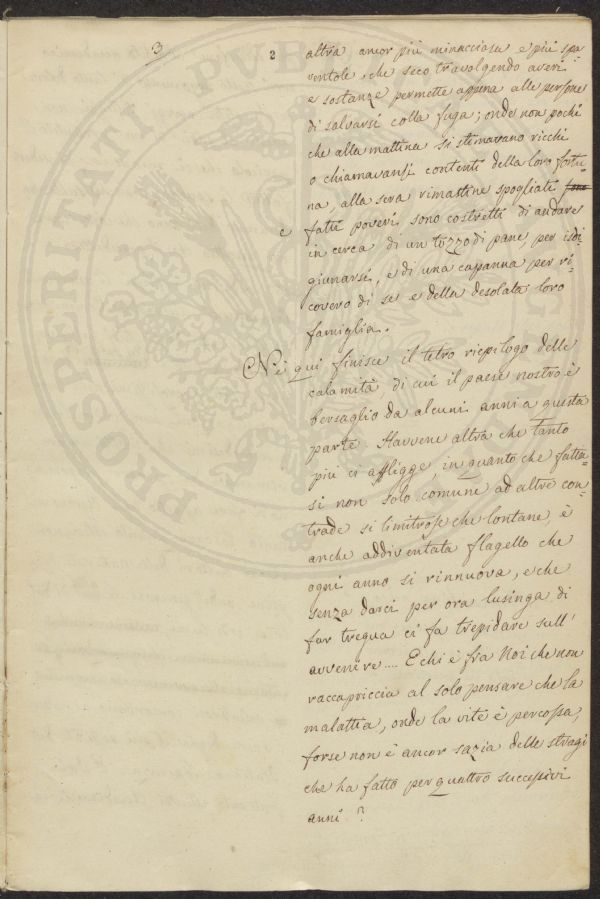 3
2
altra ancor più minacciosa e più spa-
ventole, che seco travolgendo averi
e sostanze permette appena alle persone
di salvarsi colla fuga; onde non pochi
che alla mattina si stimavano ricchi
o chiamavansi contenti della loro fortu-
na, alla sera rimastine spogliati
e fatti poveri, sono costretti di andare
in cerca di un tozzo di pane, per isdi-
giunarsi, e di una capanna per ri-
covero di se e della desolata loro
famiglia.
Nè qui finisce il tetro riepilogo delle
calamità di cui il paese nostro è
bersaglio da alcuni anni a questa
parte. Havvene altra che tanto
più ci affligge, in quanto che fatta-
si non solo comune ad altre con-
trade si limitrofe che lontane, è
anche addiventata flagello che
ogni anno si rinnuova, e che
senza darci per ora lusinga di
far tregua ci fa trepidare sull'
avvenire.... E chi è fra Noi che non
raccapriccia al solo pensare che la
malattia, onde la vite è percossa,
forse non è ancor sazia delle stragi
che ha fatto per quattro successivi
anni?
PROSPERITATI PUBLICAE